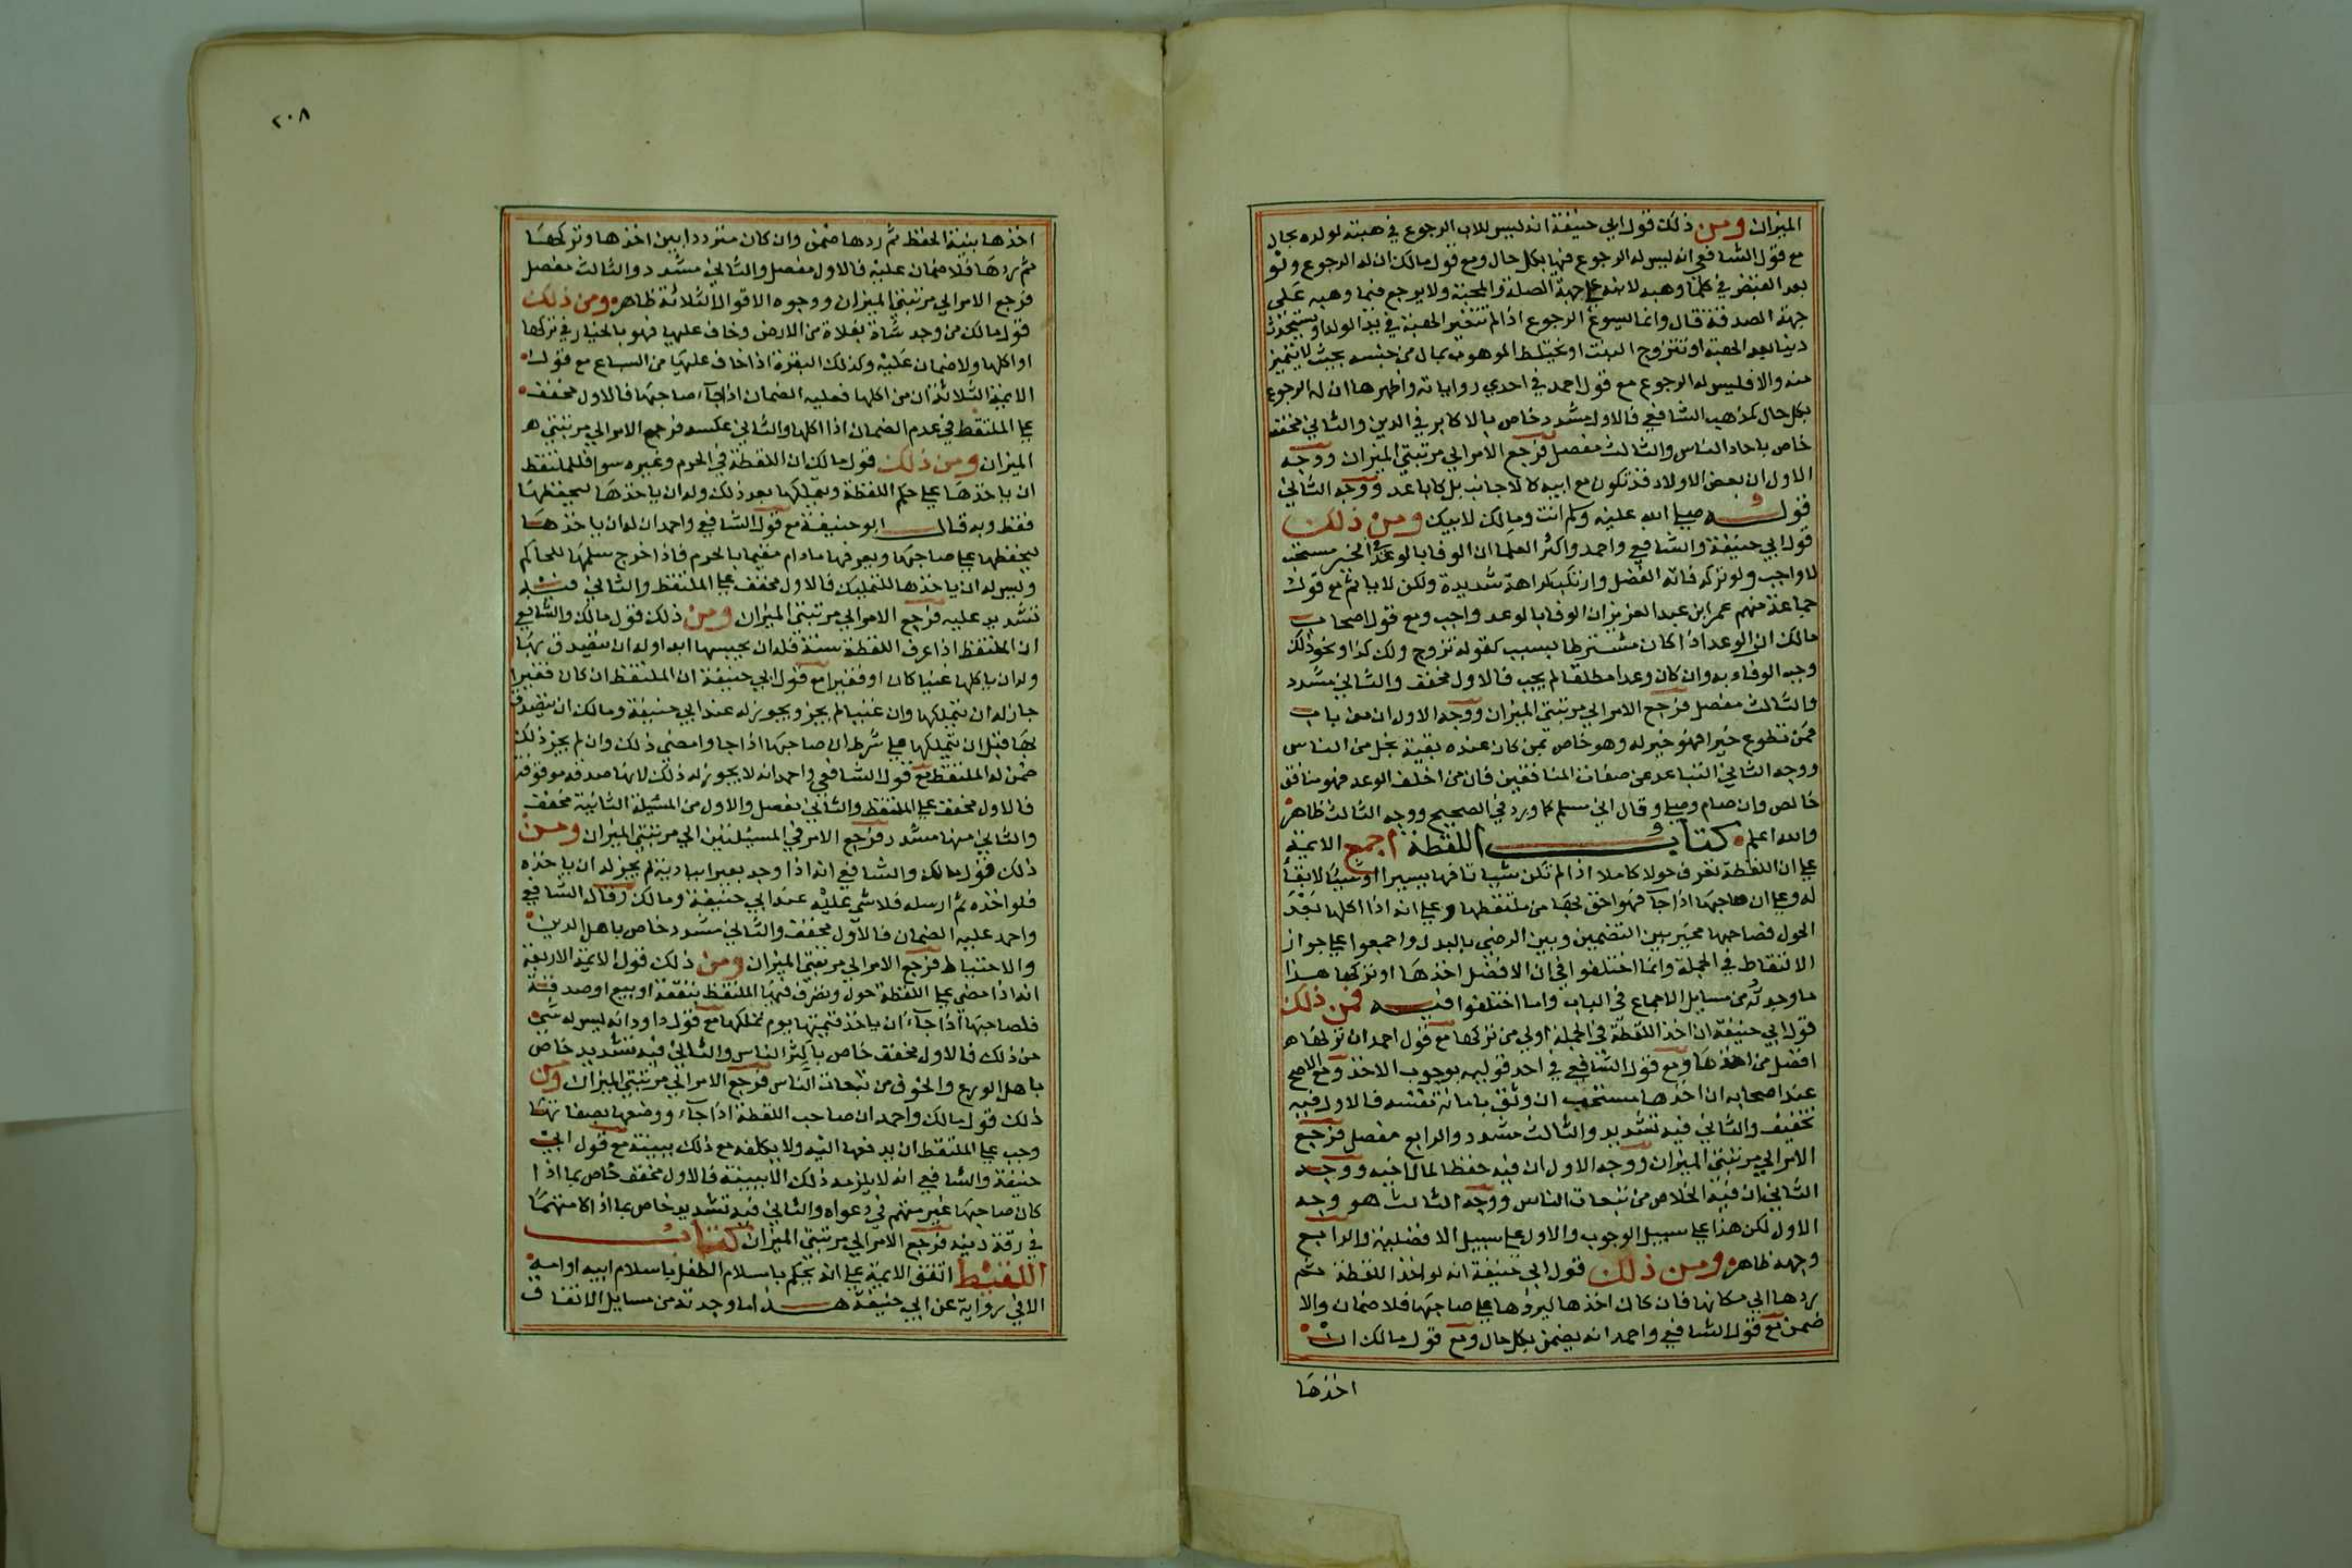 الميزان ومن ذلك قول ابي حنيفة انه ليس للاب الرجوع في هبته لولده بحال
مع قول الشافعي انه ليس له الرجوع فيها بكل حال ومع قول مالك ان له الرجوع ولو
بعد القبض في كلما وهبه لابنه علي جهة الصلة والمحبة ولا يرجع فيما وهبه على
جهة الصدقة قال وانما يسوغ الرجوع اذا لم تتغير الهبة في يد الولد او يستحدث
دينا بعد الهبة او تتزوج البنت او يختلط الموهوب بمال من جنسه بحيث لا يتميز
منه والا فليس له الرجوع مع قول احمد في احدي رواياته واظهرها ان له الرجوع
بكل حال كمذهب الشافعي فالاول مشدد خاص بالاكابر في الدين والثاني مخفف
خاص باحاد الناس والثالث مفصل فرجع الامر الي مرتبتي الميزان ووجه
الاول ان بعض الاولاد قد تكون مع ابيه كالاجانب بل كاباعد ووجه الثاني
قوله صلي الله عليه وسلم انت ومالك لابيك ومن ذلك
قول ابي حنيفة والشافعي واحمد واكثر العلما ان الوفا بالوعد الخير مستحب
لا واجب ولو تركه فاته الفضل وارتكب كراهة شديدة ولكن لا ياثم مع قول
جماعة منهم عمر ابن عبد العزيز ان الوفا بالوعد واجب ومع قول اصحاب
مالك ان الوعد اذا كان مشترطا بسبب كقوله تزوج ولك كذا ونحو ذلك
وجب الوفاء به وان كان وعدا مطلقا لم يجب فالاول مخفف والثاني مشدد
والثالث مفصل فرجع الامر الي مرتبتي الميزان ووجه الاول ان من باب
فمن تطوع خيرا فهو خير له وهو خاص بمن كان عنده بقية بخل من الناس
ووجه الثاني التباعد عن صفات المنافقين فان من اخلف الوعد فهو منافق
خالص وان صام وصلي وقال اني مسلم كما ورد في الصحيح ووجه الثالث ظاهر
والله اعلم كتاب اللقطة اجمع الايمة
علي ان اللقطة تعرف حولا كاملا اذا لم تكن شيا تافها يسيرا او شيا لا بقا
له وعلي ان صاحبها اذا جآ فهو احق بها من ملتقطها وعلي انه اذا اكلها بعد
الحول فصاحبها مخير بين التضمين وبين الرضي بالبدل واجمعوا علي جواز
الالتقاط في الجملة وانما اختلفوا في ان الافضل اخذها او تركها هذا
ما وجدته من مسايل الاجماع في الباب واما اختلفوا فيه فمن ذلك
قول ابي حنيفة ان اخذ اللقطة في الجملة اولي من تركها مع قول احمد ان تركها هو
افضل من اخذها ومع قول الشافعي في احد قوليه بوجوب الاخذ ومع الاصح
عند اصحابه ان اخذها مستحب ان وثق بامانة نفسه فالاول فيه
تخفيف والثاني فيه تشديد والثالث مشدد والرابع مفصل فرجع
الامر الي مرتبتي الميزان ووجه الاول ان فيه حفظا لمال اخيه ووجه
الثاني ان فيه الخلاص من تبعات الناس ووجه الثالث هو وجه
الاول لكن هذا علي سبيل الوجوب والاول علي سبيل الافضلية والرابع
وجهه ظاهر ومن ذلك قول ابي حنيفة انه لو اخذ اللقطة ثم
ردها الي مكانها فان كان اخذها ليردها علي صاحبها فلا ضمان والا
ضمن مع قول الشافعي واحمد انه يضمن بكل حال ومع قول مالك ان
اخذها
٢٠٨
اخذها بنية الحفظ ثم ردها ضمن وان كان مترددا بين اخذها وتركها
ثم ردها فلا ضمان عليه فالاول مفصل والثاني مشدد والثالث مفصل
فرجع الامر الي مرتبتي الميزان ووجوه الاقوال الثلاثة ظاهره ومن ذلك
قول مالك من وجد شاة بفلاة من الارض وخاف عليها فهو بالخيار في تركها
او اكلها ولا ضمان عليه وكذلك البقرة اذا خاف عليها من السباع مع قول
الايمة الثلاثة ان من اكلها فعليه الضمان اذا جآء صاحبها فالاول مخفف
علي الملتقط في عدم الضمان اذا اكلها والثاني عكسه فرجع الامر الي مرتبتي
الميزان ومن ذلك قول مالك ان اللقطة في الحرم وغيره سوا فللملتقط
ان ياخذها علي حكم اللقطة ويتملكها بعد ذلك وله ان ياخذها ليحفظها
فقط وبه قال ابو حنيفة مع قول الشافعي واحمد ان له ان ياخذها
ليحفظها علي صاحبها ويعرفها مادام مقيما بالحرم فاذا خرج سلمها للحاكم
وليس له ان ياخذها للتمليك فالاول مخفف علي الملتقط والثاني فيه
تشديد عليه فرجع الامر الي مرتبتي الميزان ومن ذلك قول مالك والشافعي
ان الملتقط اذا عرف اللقطة سنة فله ان يحبسها ابدا وله ان يتصدق بها
وله ان ياكلها غنيا كان او فقيرا مع قول ابي حنيفة ان الملتقط ان كان فقيرا
جاز له ان يتملكها وان غنيا لم يجز ويجوز له عند ابي حنيفة ومالك ان يتصدق
بها قبل ان يتملكها علي شرط ان صاحبها اذا جا وامضي ذلك وان لم يجز ذلك
ضمن له الملتقط مع قول الشافعي واحمد انه لا يجوز له ذلك لانها صدقه موقوفه
فالاول مخفف علي الملتقط والثاني مفصل والاول من المسئلة الثانية مخفف
والثاني منها مشدد فرجع الامر في المسئلتين الي مرتبتي الميزان ومن
ذلك قول مالك والشافعي انه اذا وجد بعيرا ببادية لم يجز له ان ياخذه
فلو اخذه ثم ارسله فلا شي عليه عند ابي حنيفة ومالك وقال الشافعي
واحمد عليه الضمان فالاول مخفف والثاني مشدد خاص باهل الدين
والاحتياط فرجع الامر الي مرتبتي الميزان ومن ذلك قول الايمة الاربعة
انه اذا مضي علي اللقطة حول وتصرف فيها الملتقط بنفقة او بيع او صدقة
فلصاحبها اذا جآء ان ياخذ قيمتها يوم تملكها مع قول داود انه ليس له شي
من ذلك فالاول مخفف خاص باكثر الناس والثاني فيه تشديد خاص
باهل الورع والخوف من تبعات الناس فرجع الامر الي مرتبتي الميزان ومن
ذلك قول مالك واحمد ان صاحب اللقطة اذا جآء ووصفها بصفاتها
وجب علي الملتقط ان يدفعها اليه ولا يكلفه مع ذلك ببينة مع قول ابي
حنيفة والشافعي انه لا يلزمه ذلك الا ببينة فالاول مخفف خاص بما اذا
كان صاحبها غير متهم في دعواه والثاني فيه تشديد خاص بما اذا كا متهما
في رقة دينه فرجع الامر الي مرتبتي الميزان كتاب
اللقيط اتفق الايمة علي انه يحكم باسلام الطفل باسلام ابيه او امه
الا في رواية عن ابي حنيفة هذا ما وجدته من مسايل الاتفاق